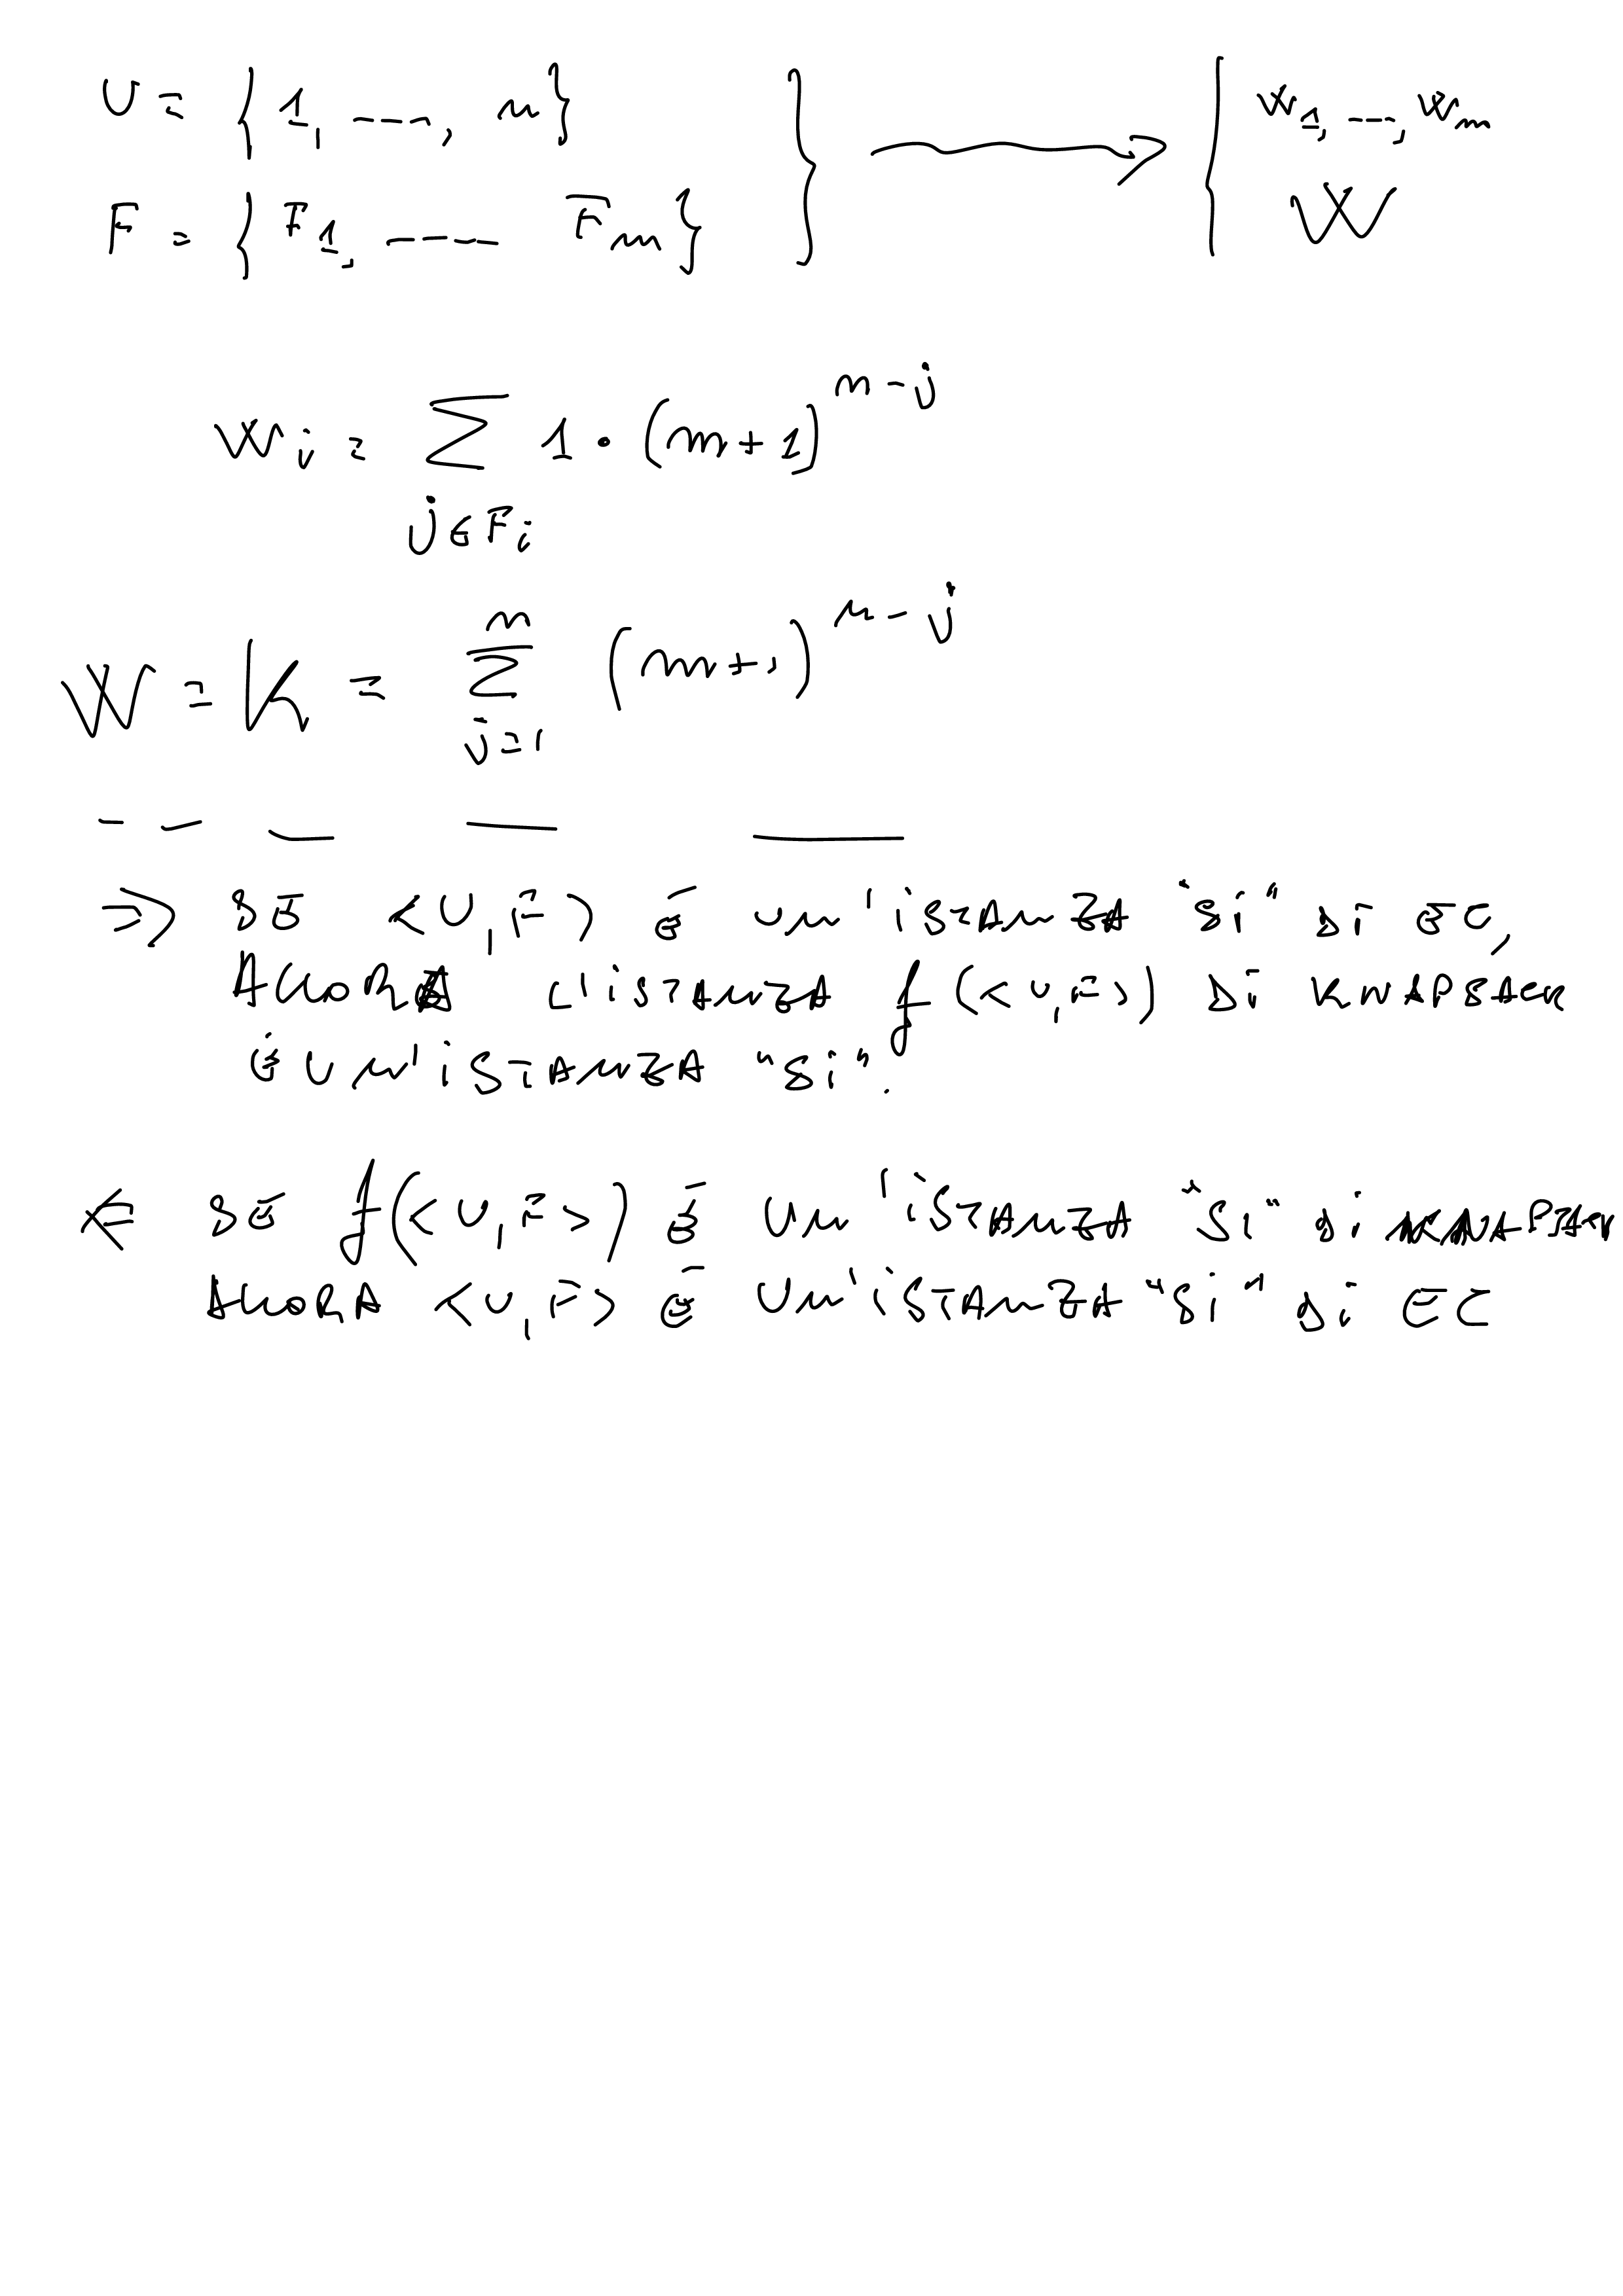 U = { 1, ---, n } } → { w1, ---, wm
F = { F1, ---- Fm } W
wi = Σ 1 · (m+1)^n-j
j∈Fi
W = K = Σ (m+1)^n-j
n
j=1
⇒ SE <U,F> È UN'ISTANZA "SI" DI EC,
ALLORA L'ISTANZA f(<U,F>) DI KNAPSACK
È UN'ISTANZA "SI".
⇐ SE f(<U,F>) È UN'ISTANZA "SI" DI KNAPSACK
ALLORA <U,F> È UN'ISTANZA "SI" DI EC